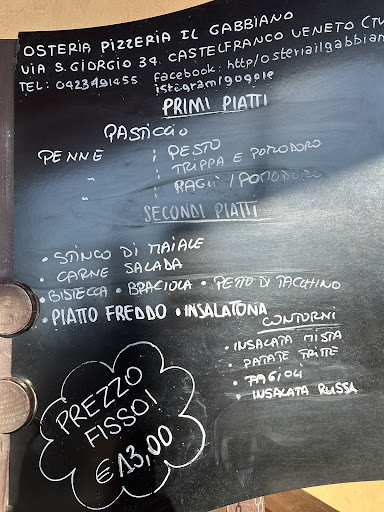 OSTERIA PIZZERIA IL GABBIANO
VIA S. GIORGIO 34 CASTELFRANCO VENETO (TV
TEL: 0423491455 Facebook: http/osteriailgabbian
istagram/google
PRIMI PIATTI
PASTICCIO
PENNE ; PESTO
" ; TRIPPA E POMODORO
" ; RAGÙ / POMODORO
SECONDI PIATTI
• STINCO DI MAIALE
• CARNE SALADA
• BISTECCA • BRACIOLA • PETTO DI TACCHINO
• PIATTO FREDDO • INSALATONA
CONTORNI
• INSALATA MISTA
• PATATE FRITTE
• FAGIOLI
• INSALATA RUSSA
PREZZO
FISSO!
€ 13,00